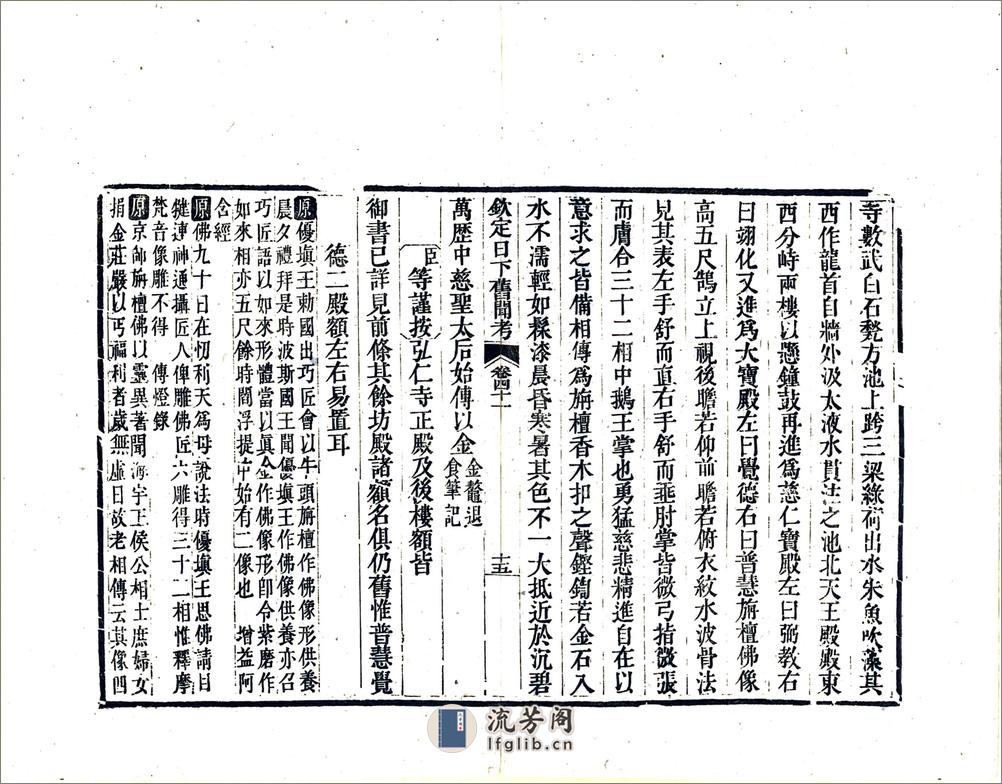 寺數武白石甃方池上跨三梁綠荷出水朱魚吹藻其
西作龍首自牆外汲太液水貫注之池北天王殿殿東
西分峙兩樓以懸鐘鼓再進爲慈仁寶殿左曰弼教右
曰翊化又進爲大寶殿左曰覺德右曰普慧旃檀佛像
高五尺鵠立上視後瞻若仰前瞻若俯衣紋水波骨法
見其表左手舒而直右手舒而垂肘掌皆微弓指微張
而膚合三十二相中鵝王掌也勇猛慈悲精進自在以
意求之皆備相傳爲旃檀香木扣之聲鏗鍧若金石入
水不濡輕如髹漆晨昏寒暑其色不一大抵近於沉碧
欽定日下舊聞考 卷四十一 十五
萬歷中慈聖太后始傳以金 金鼇退
食筆記
臣等謹按弘仁寺正殿及後樓額皆
御書已詳見前條其餘坊殿諸額名俱仍舊惟普慧覺
德二殿額左右易置耳
原優塡王勅國出巧匠會以牛頭旃檀作佛像形供養
晨夕禮拜是時波斯國王聞優塡王作佛像供養亦召
巧匠語以如來形體當以眞金作佛像形卽令紫磨作
如來相亦五尺餘時閻浮提中始有二像也 增益阿
含經
原佛九十日在忉利天爲母說法時優塡王思佛請目
犍連神通攝匠人俾雕佛匠六雕得三十二相惟釋摩
梵音像雕不得 傳燈錄
原京師旃檀佛以靈異著聞海宇王侯公相士庶婦女
捐金莊嚴以丐福利者歲無虛日故老相傳云其像四
流芳阁
lfglib.cn